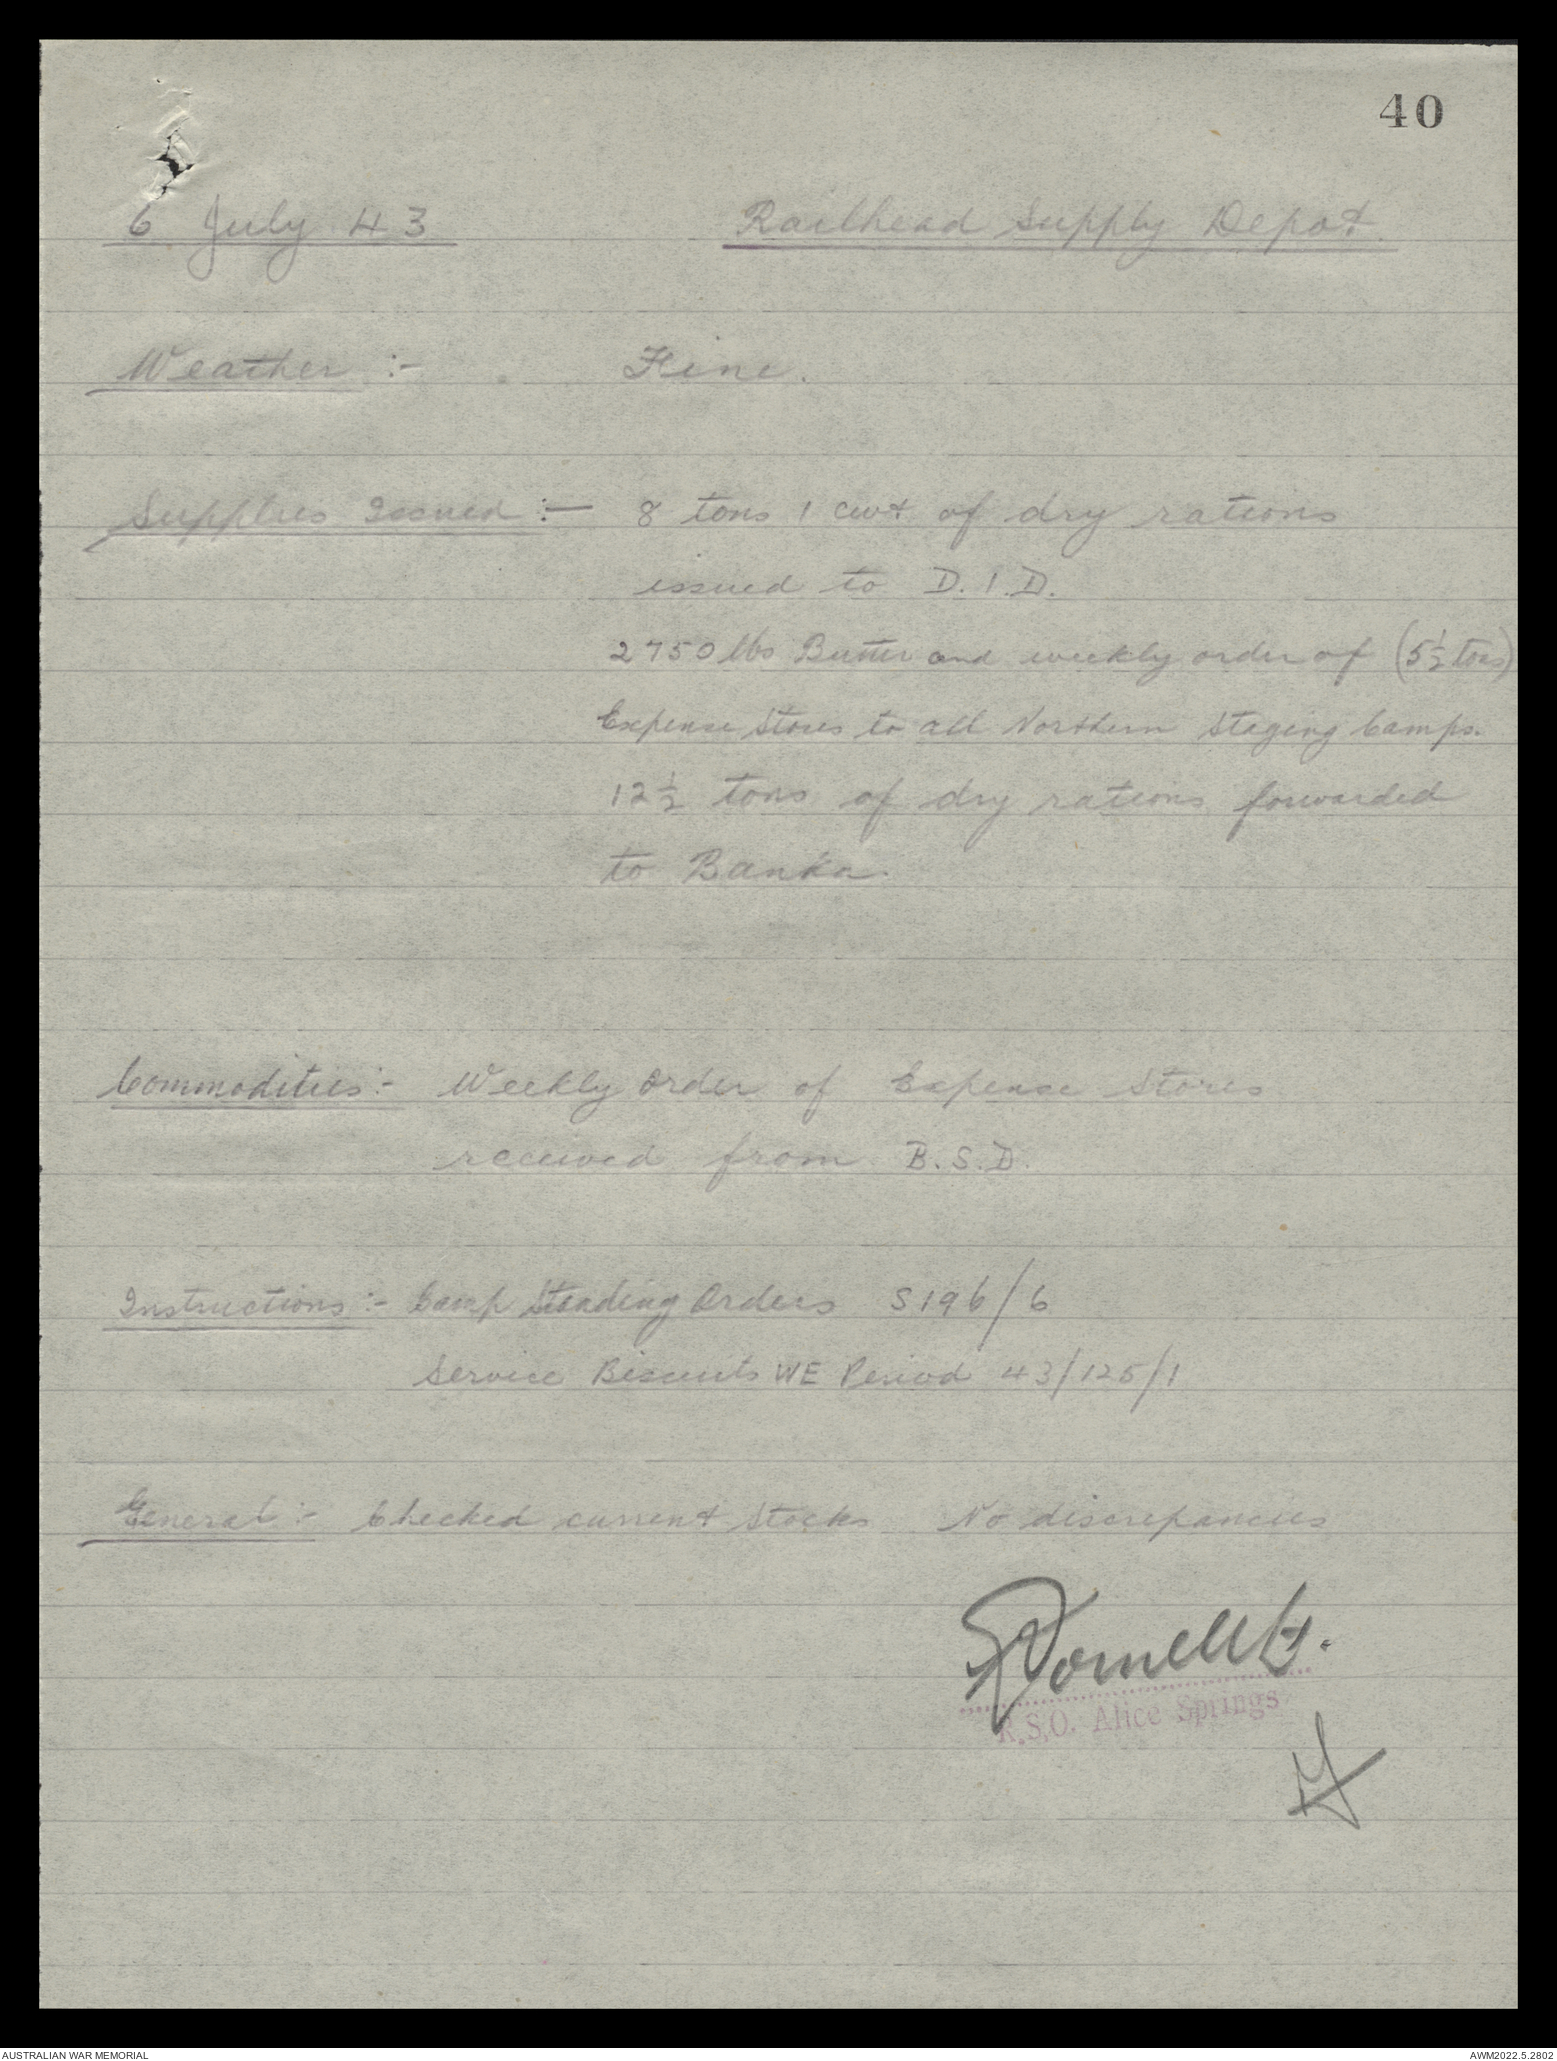 40
6 July 43 Railhead Supply Depot.
Weather :- Fine.
Supplies Issued :- 8 tons 1 cwt of dry rations
issued to D.I.D.
2750 lbs Butter and weekly order of (5½ tons)
Expense Stores to all Northern Staging Camps.
12½ tons of dry rations forwarded
to Banka.
Commodities :- Weekly Order of Expense Stores
received from B.S.D.
Instructions :- Camp Standing Orders S196/6
Service Biscuits WE Period 43/125/1
General :- Checked current Stocks No discrepancies
R.S.O. Alice Springs
AUSTRALIAN WAR MEMORIAL AWM2022.5.2802